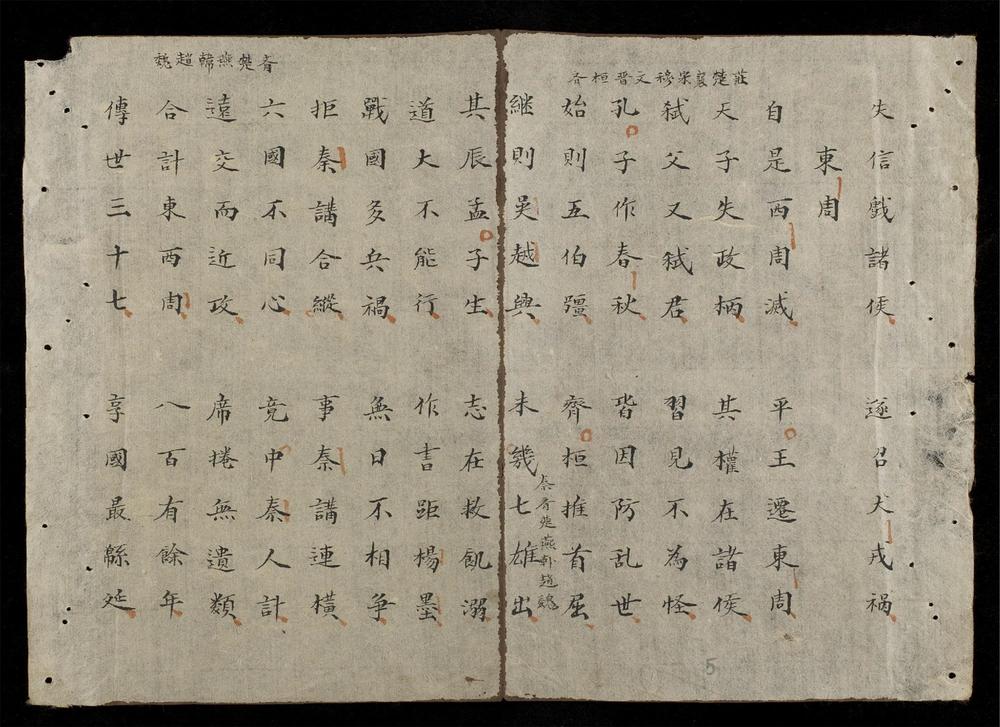 莊楚襄宋穆文晋桓斉
失信戲諸侯　遂召犬戎祸
東周
自是西周滅　平王遷東周
天子失政柄　其權在諸侯
弑父又弑君　習見不為怪
孔子作春秋　皆因防乱世
始則五伯彊　齊桓推首屈
継則吳越興　未幾七雄出
秦斉楚燕韩趙魏
其辰孟子生　志在救飢溺
道大不能行　作書距楊墨
戰國多兵禍　無日不相争
拒秦講合縱　事秦講連橫
六國不同心　竟中秦人計
遠交而近攻　席捲無遺類
合計東西周　八百有餘年
傳世三十七　享國最緜延
魏趙韓燕楚斉
5